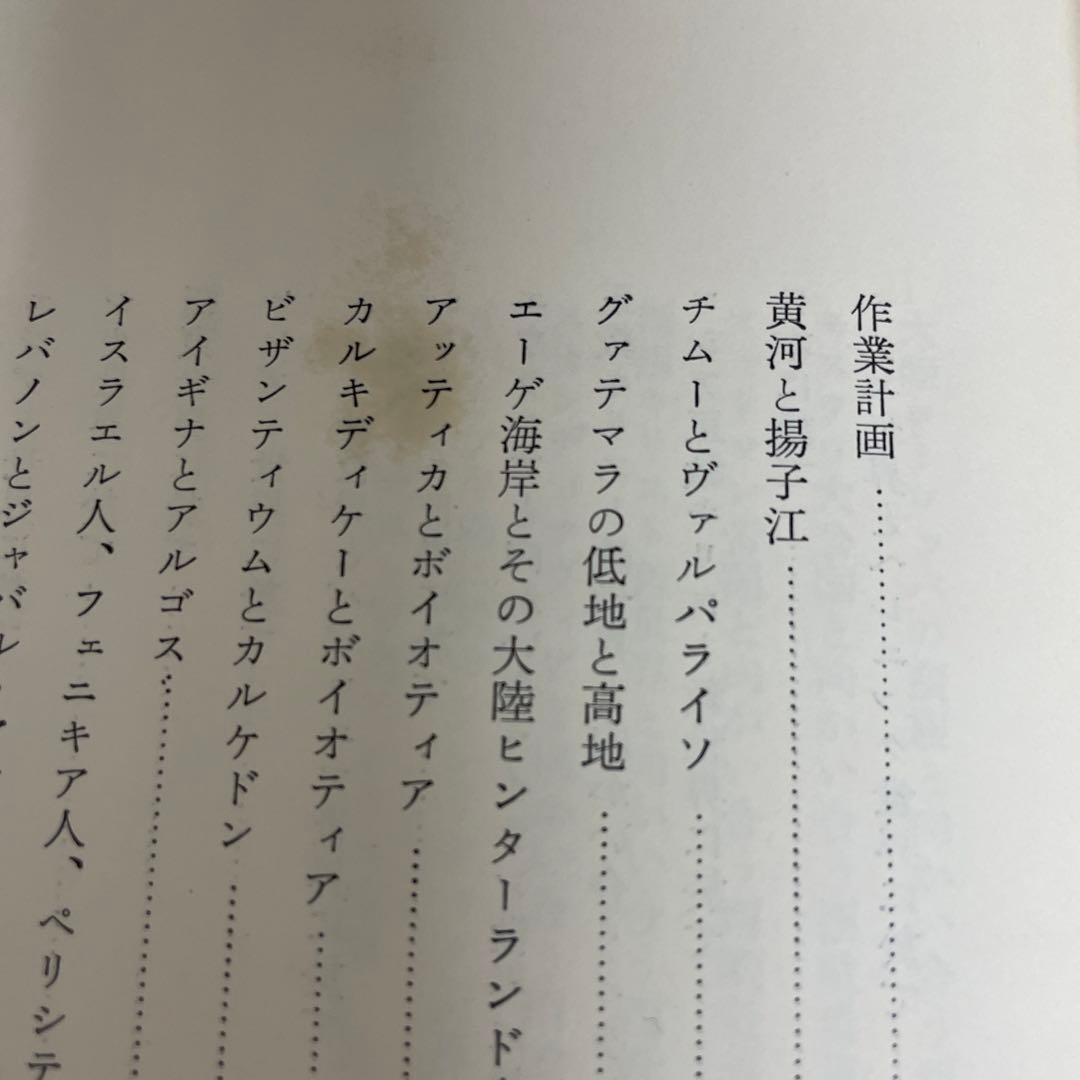 作業計画
黄河と揚子江
チムーとヴァルパライソ
グァテマラの低地と高地
エーゲ海岸とその大陸ヒンターランド
アッティカとボイオティア
カルキディケーとボイオティア
ビザンティウムとカルケドン
アイギナとアルゴス
イスラエル人、フェニキア人、ペリシテ
レバノンとジャバル